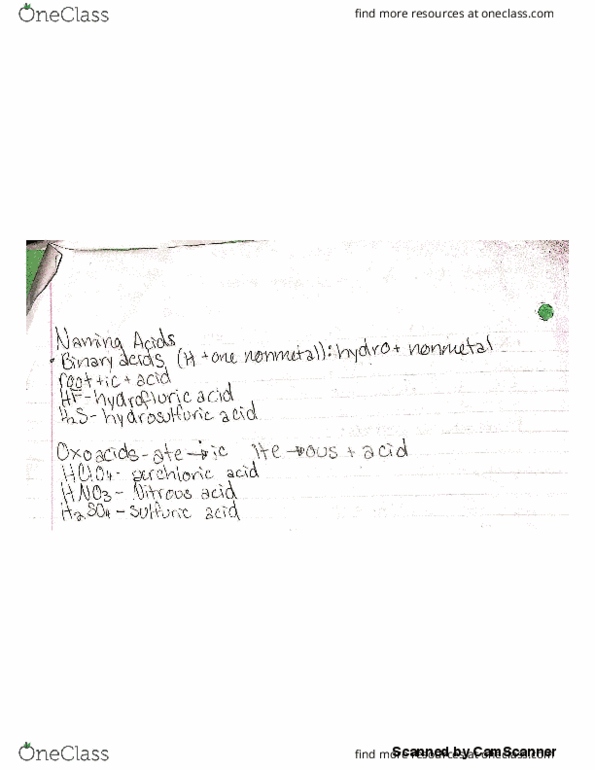 OneClass
find more resources at oneclass.com
Naming Acids
• Binary acids (H + one nonmetal): hydro + nonmetal
root + ic + acid
HF - hydrofluric acid
H2S - hydrosulfuric acid
Oxoacids - ate → ic ite → ous + acid
HClO4 - perchloric acid
HNO3 - Nitrous acid
H2SO4 - sulfuric acid
OneClass
find more resources at oneclass.com
Scanned by CamScanner